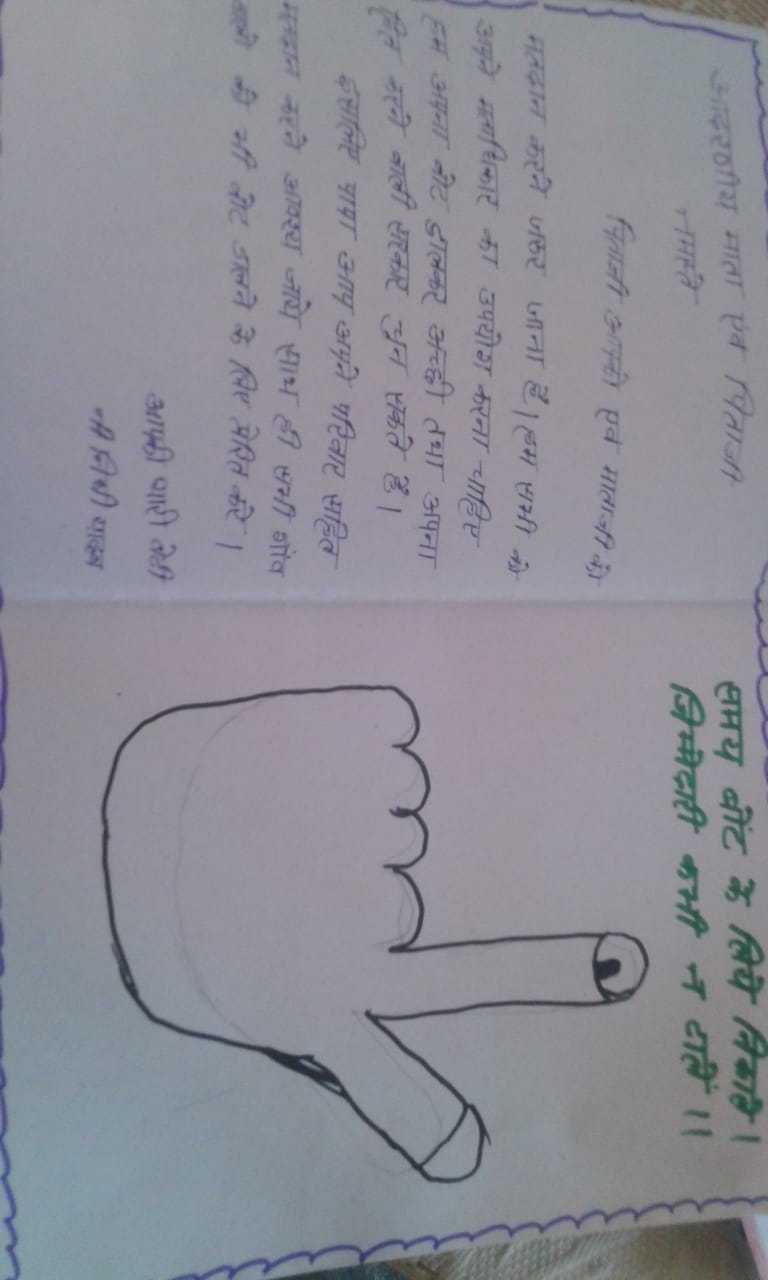 आदरणीय माता एवं पिताजी
नमस्ते
पिताजी आपको एवं माताजी को
मतदान करने जरूर जाना है। हम सभी को
अपने मताधिकार का उपयोग करना चाहिए
हम अपना वोट डालकर अच्छी तथा अपना
हित करने वाली सरकार चुन सकते हैं।
इसलिए पापा आप अपने परिवार सहित
मतदान करने अवश्य जाये साथ ही सभी गांव
वालो को भी वोट डालने के लिए प्रेरित करें।
आपकी प्यारी बेटी
यादव
समय वोट के लिये निकाले।
जिम्मेदारी कभी न टाले।।